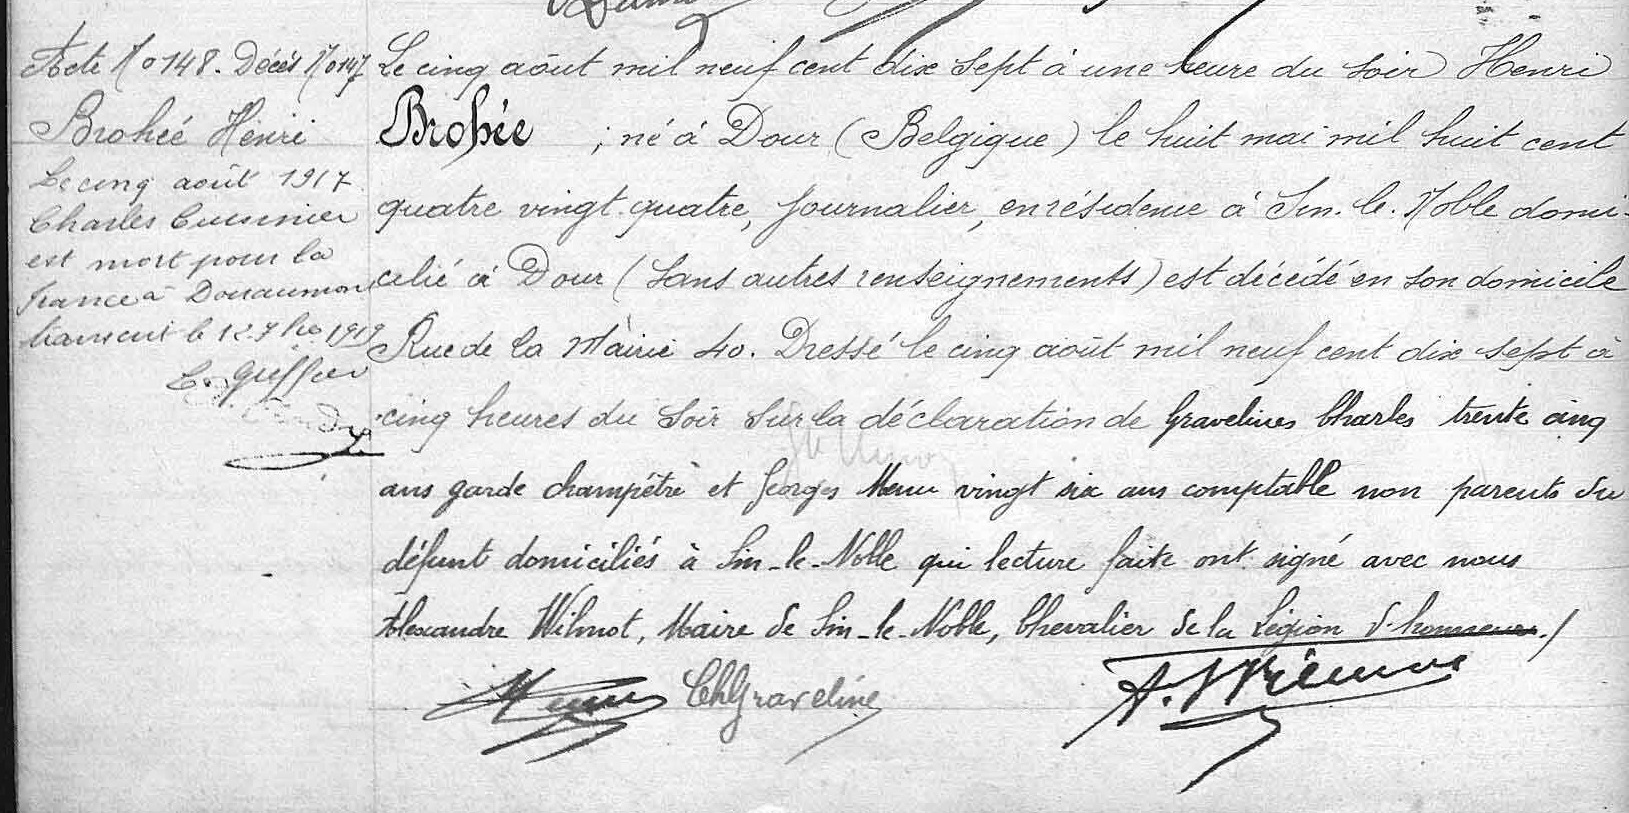 Acte No 148. Décès No 147
Brohée Henri
Le cinq août 1917
Charles Cuisinier
est mort pour la
france à Douaumont
transcrit le 12 7bre 1919
Le Greffier
Le cinq août mil neuf cent dix sept à une heure du soir Henri
Brohée , né à Dour (Belgique) le huit mai mil huit cent
quatre vingt quatre, journalier, en résidence à Sin. le. Noble domi-
cilié à Dour (sans autres renseignements) est décédé en son domicile
Rue de la Mairie 40. Dressé le cinq août mil neuf cent dix sept à
cinq heures du soir sur la déclaration de Gravelines Charles trente cinq
ans garde champêtre et Georges Menu vingt six ans comptable non parents du
défunt domiciliés à Sin-le-Noble qui lecture faite ont signé avec nous
Alexandre Wilmot, Maire de Sin-le-Noble, Chevalier de la Légion d'honneur./
Menu ChGraveline A. Wilmot